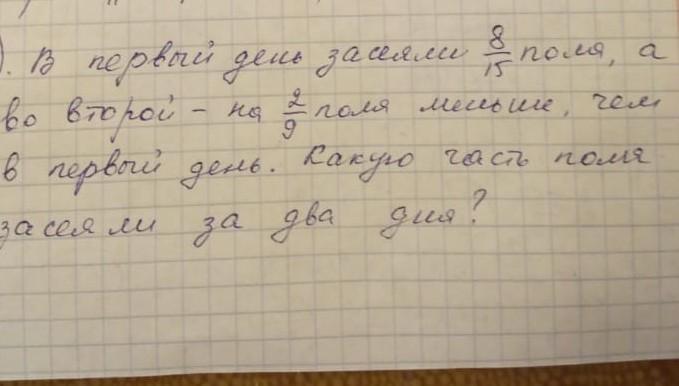 ). В первый день засеяли 8/15 поля, а
во второй - на 2/9 поля меньше, чем
в первый день. Какую часть поля
засеяли за два дня?